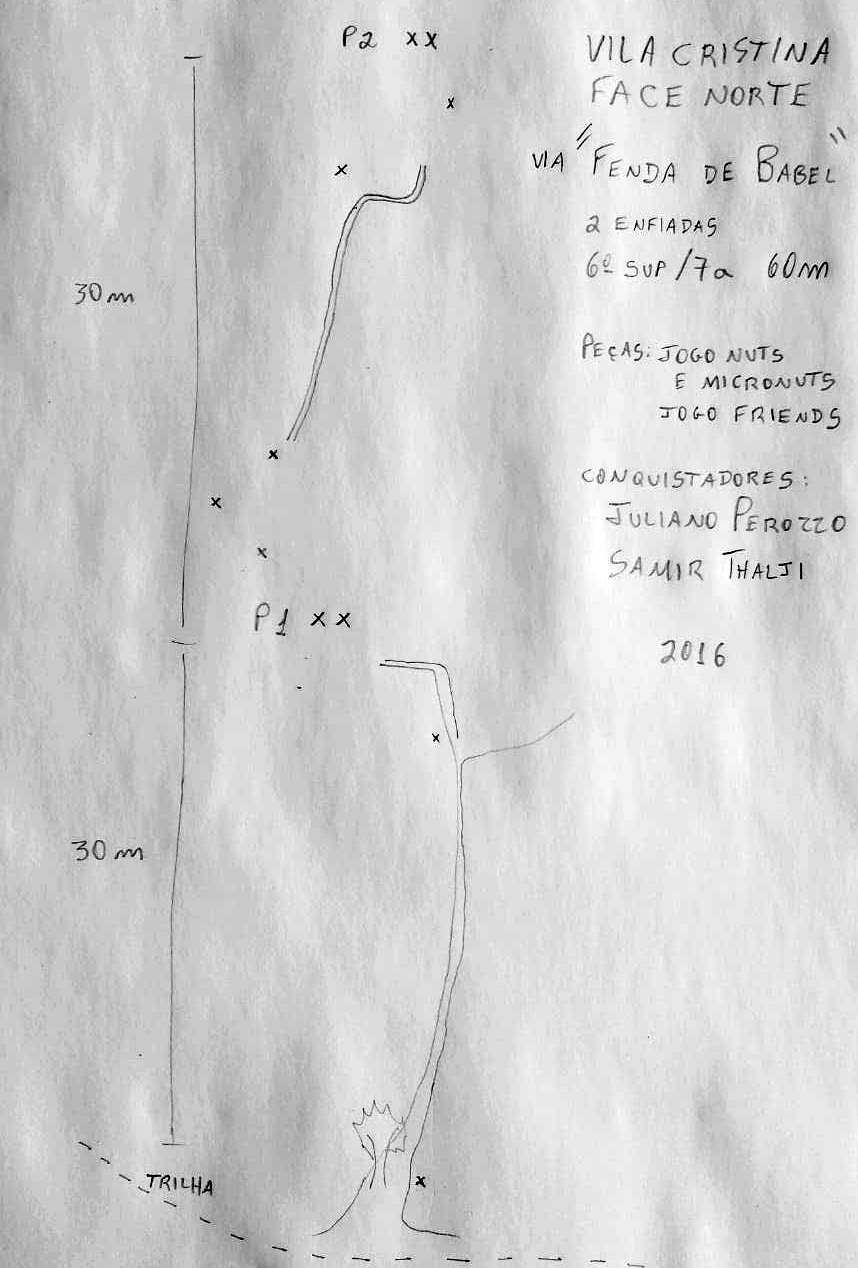 P2 xx
x
x
30m
x
x
x
P1 xx
x
30m
x
TRILHA
VILA CRISTINA
FACE NORTE
VIA "FENDA DE BABEL"
2 ENFIADAS
6º SUP/7a 60m
PEÇAS: JOGO NUTS
E MICRONUTS
JOGO FRIENDS
CONQUISTADORES:
JULIANO PEROZZO
SAMIR THALJI
2016